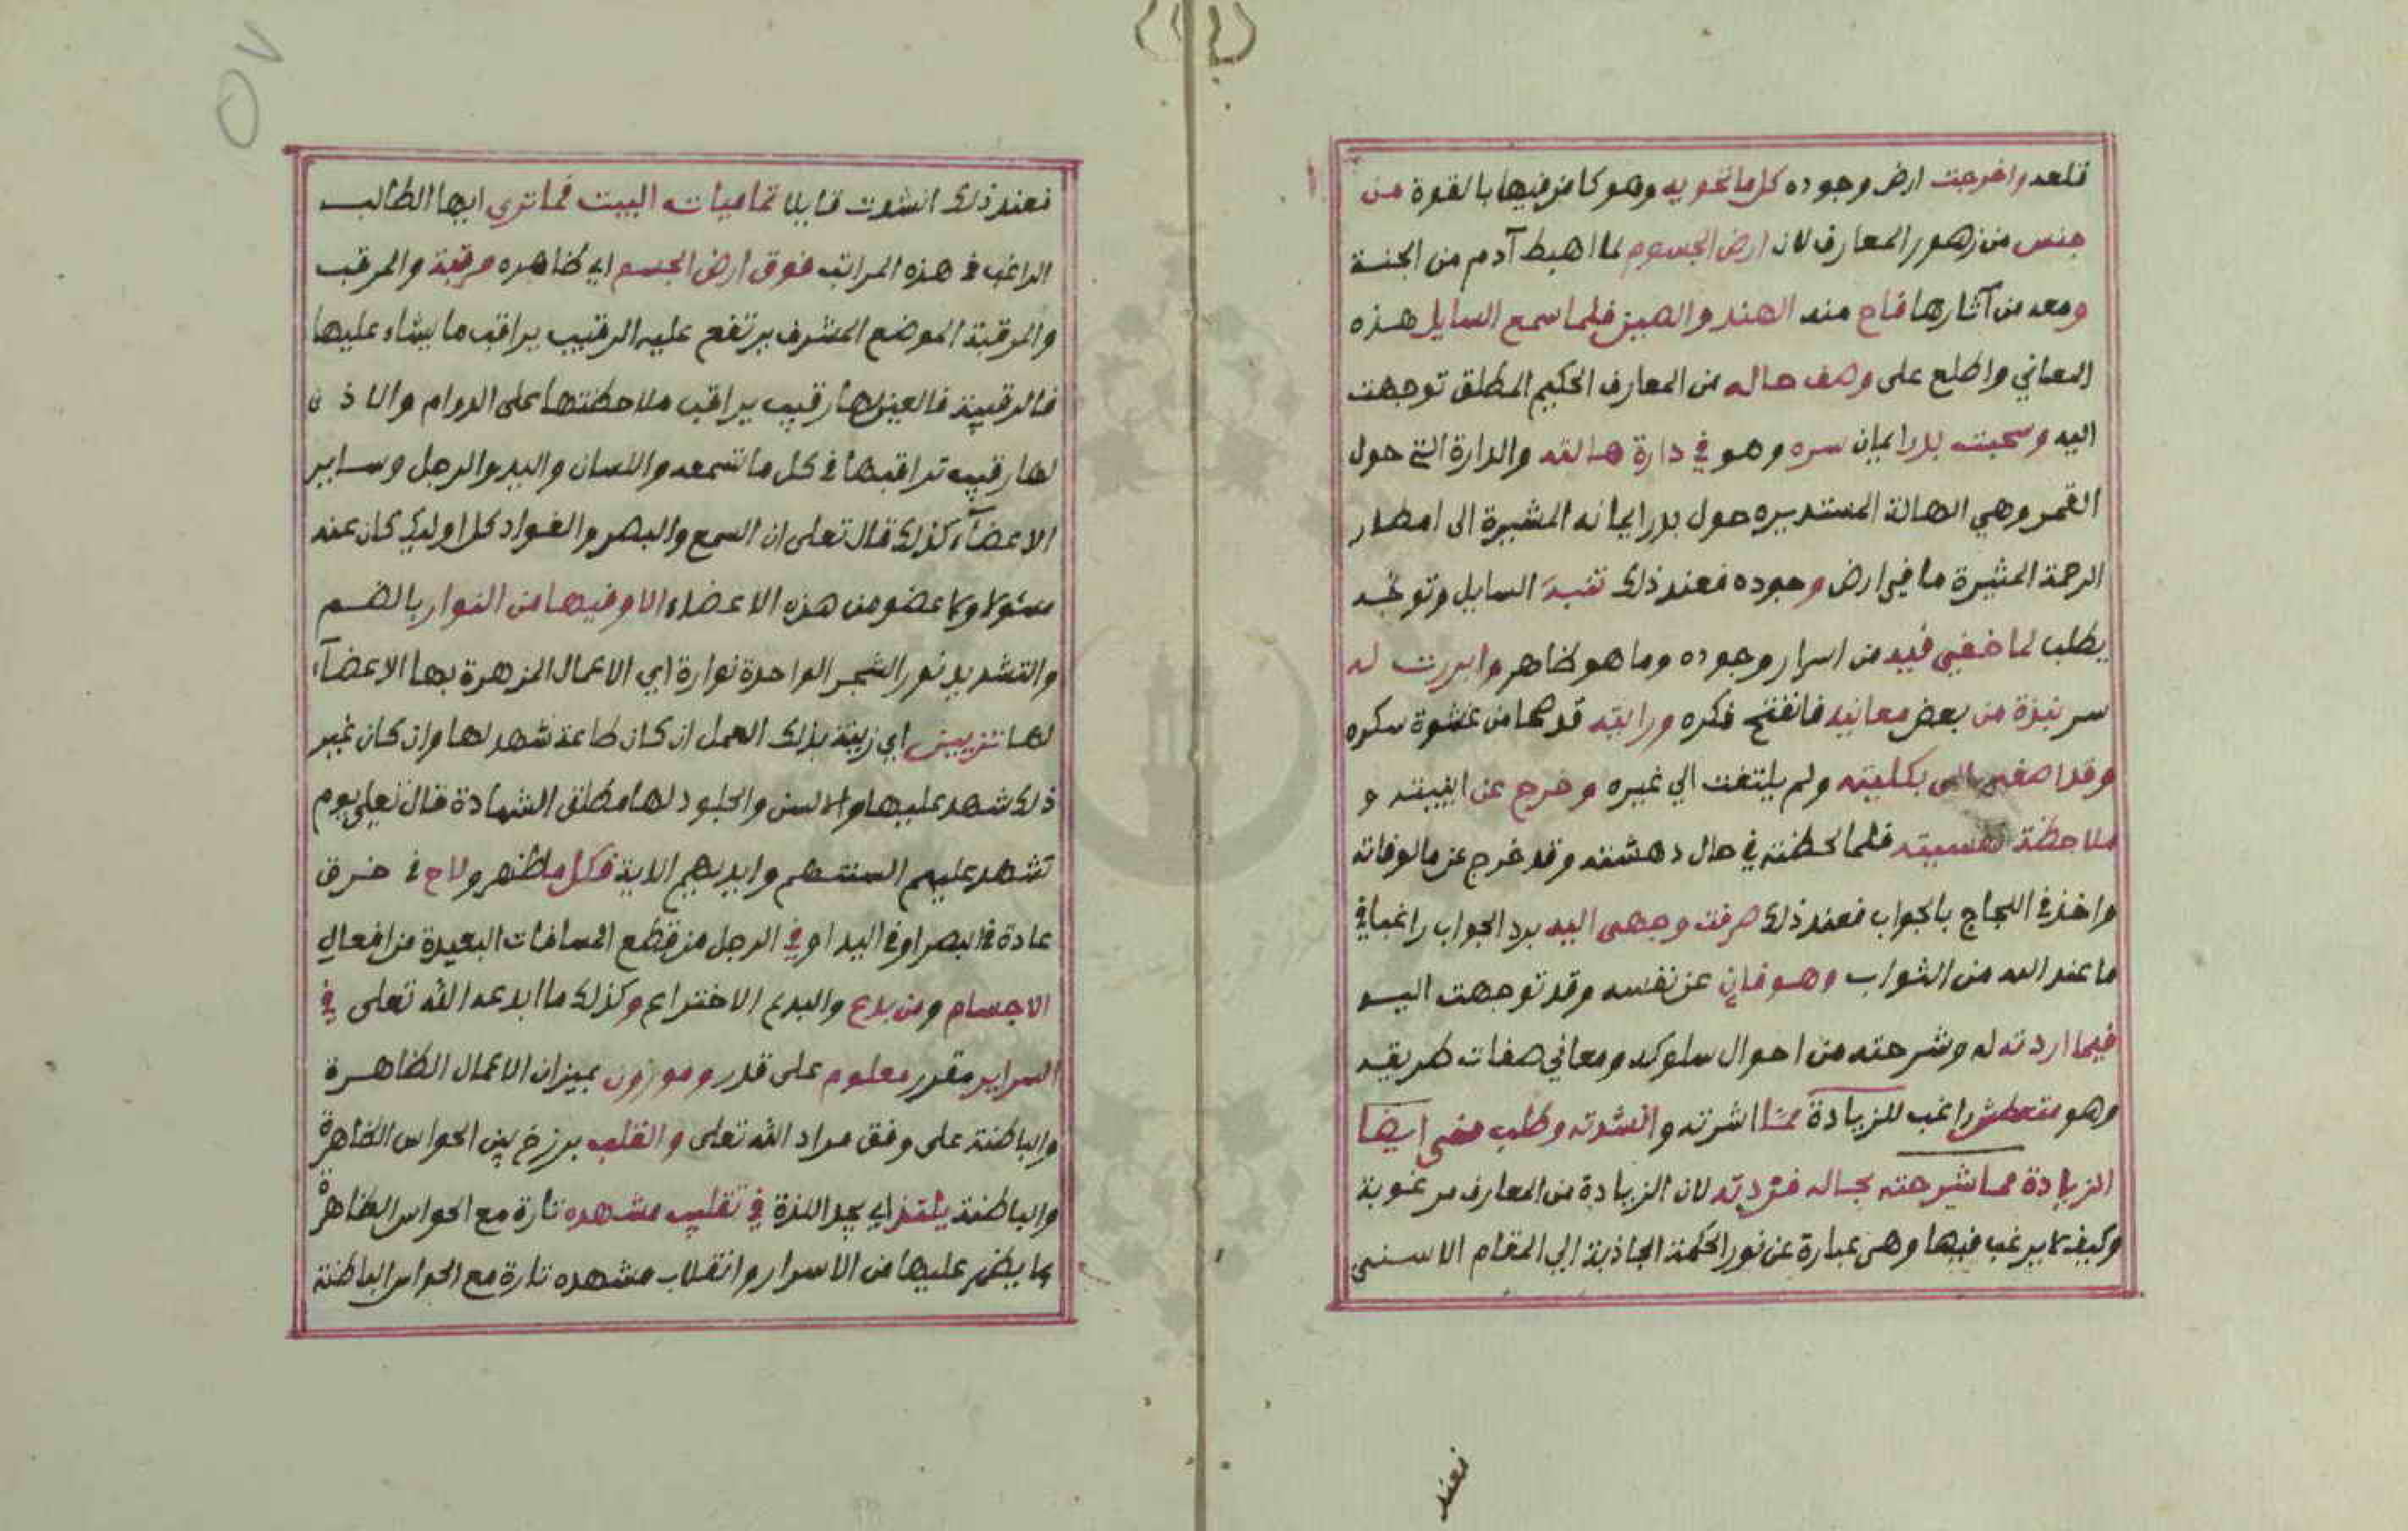 قلعه واخرجت ارض وجوده كل ما تحويه وهو كامن فيها بالقوة من
جنس من زهور المعارف لان ارض الجسوم لما اهبط آدم من الجنة
ومعه من آثارها فاح منه الهند والصين فلما سمع السايل هذه
المعاني واطلع على وصف حاله من المعارف الحكيم المطلق توجهت
اليه وسحبت بدر ايمان سره وهو في دارة هالته والدارة التي حول
القمر وهي الهالة المستديره حول بدر ايمانه المشيرة الى امطار
الرحمة المثيرة ما في ارض وجوده فعند ذلك تنبه السايل وتوجد
يطلب لما خفي فيه من اسرار وجوده وما هو ظاهر وابرزت له
سر نبذة من بعض معانيه فانفتح فكره ورايته قد صحا من غشوة سكره
وقد اصغى الى بكليته ولم يلتفت الي غيره وخرج عن اينيته و
ملاحظة نفسيته فلما لحظته في حال دهشته وقد خرج عن مالوفاته
واخذ في اللجاج بالجواب فعند ذلك صرفت وجهي اليه برد الجواب راغبا في
ما عند الله من الثواب وهو فان عن نفسه وقد توجهت اليه
فيما اردته له وشرحته من احوال سلوكه ومعاني صفات طريقه
وهو متعطش راغب للزيادة مما اشرته وانشدته وطلب مني ايضا
الزيادة مما شرحته بحاله فزدته لان الزيادة من المعارف مرغوبة
وكيف لا يرغب فيها وهي عبارة عن نور الحكمة الجاذبة الي المقام الاسني
فعند
٥٧
فعند ذلك انشدت قايلا تماميات البيت فما تري ايها الطالب
الراغب في هذه المراتب فوق ارض الجسم اي ظاهره مرقبة والمرقب
والمرقبة الموضع المشرف يرتفع عليه الرقيب يراقب ما يشاء عليها
فالرقيبة فالعين لها رقيب يراقب ملاحظتها على الدوام والاذن
لها رقيب تراقبها في كل ما تسمعه واللسان واليد والرجل وساير
الاعضآء كذلك قال تعلى ان السمع والبصر والفواد كل اوليك كان عنه
مسئولا وكا عضو من هذه الاعضاء الا وفيها من النوار بالضم
والتشديد نور الشجر الواحدة نوارة اي الاعمال المزهرة بها الاعضآء
لها تزيين اي زينة بذلك العمل ان كان طاعة شهد لها وان كان غير
ذلك شهد عليها والالسن والجلود لها مطلق الشهادة قال تعلى يوم
تشهد عليهم السنتهم وايديهم الاية فكل ما ظهر ولاح في خرق
عادة في البصر او في اليد او في الرجل من قطع المسافات البعيدة من افعال
الاجسام ومن بدع والبدع الاختراع وكذلك ما ابدعه الله تعلى في
السراير مقدر معلوم على قدر وموزون بميزان الاعمال الظاهرة
والباطنة على وفق مراد الله تعلى والقلب برزخ بين الحواس الظاهرة
والباطنة يلتذ اي يجد اللذة في تقليب مشهده تارة مع الحواس الظاهرة
بما يظهر عليها من الاسرار وانقلاب مشهده تارة مع الحواس الباطنة